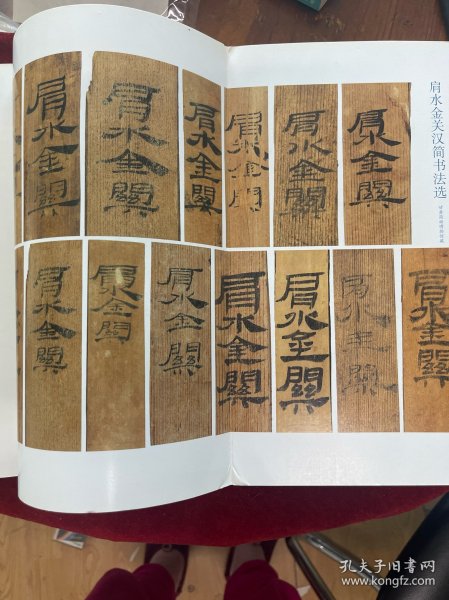 肩水金关汉简书法选
肩水金關
肩水金關
肩水金關
肩水金關
肩水金關
肩水金關
肩水金關
肩水金關
肩水金關
肩水金關
肩水金關
肩水金關
肩水金關
孔夫子旧书网
www.kongfz.com